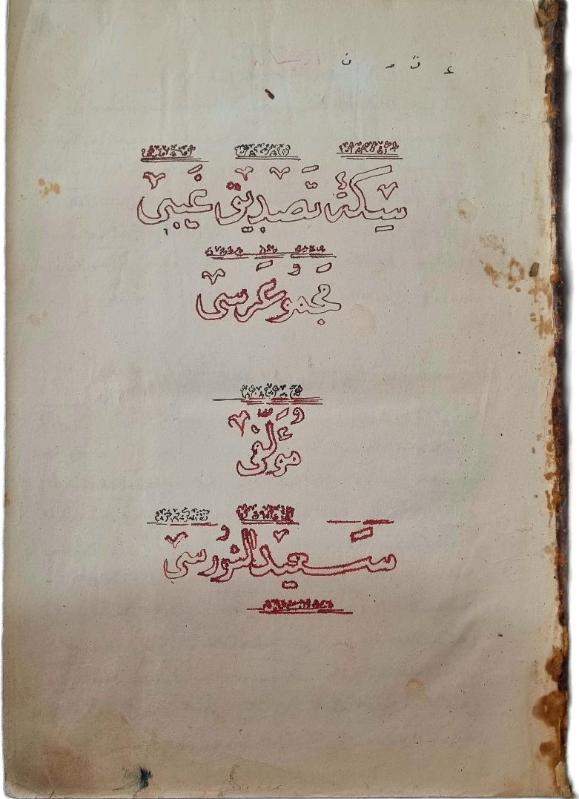 سِكَّۀ تَصْدِيقِ غَيْبِى
مَجْمُوعَه‌سِى
مُؤَلِّفِى
سَعِيدُ النُّورْسِى